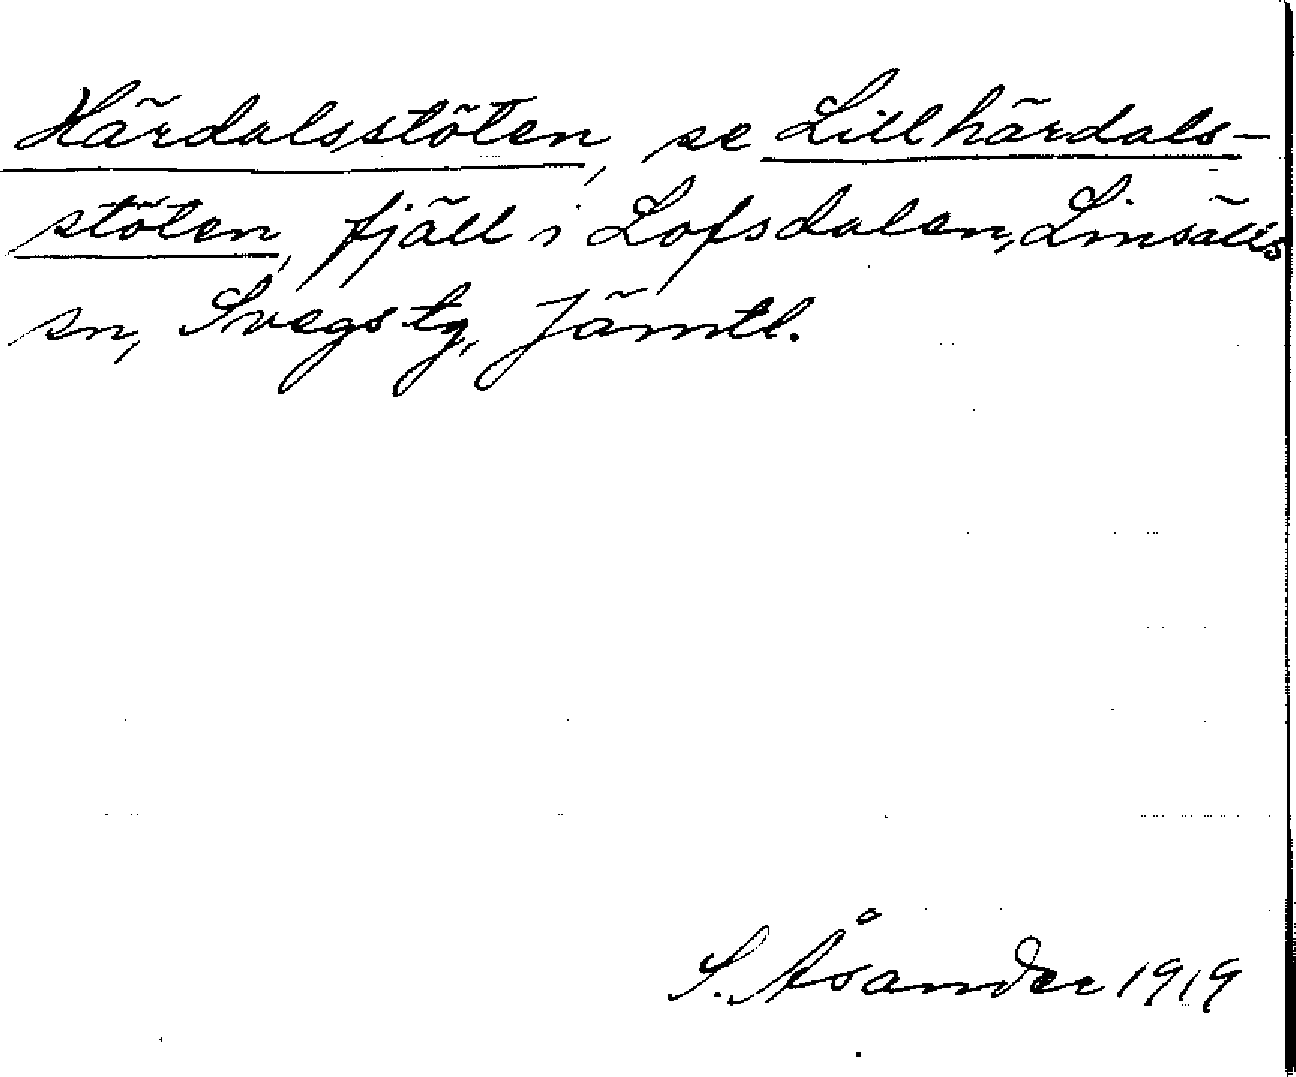 Härdalsstöten, se Lillhärdals-
stöten, fjäll i Lofsdalen, Linsälls
sn, Svegs tg, Jämtl.
S. Åsander 1919